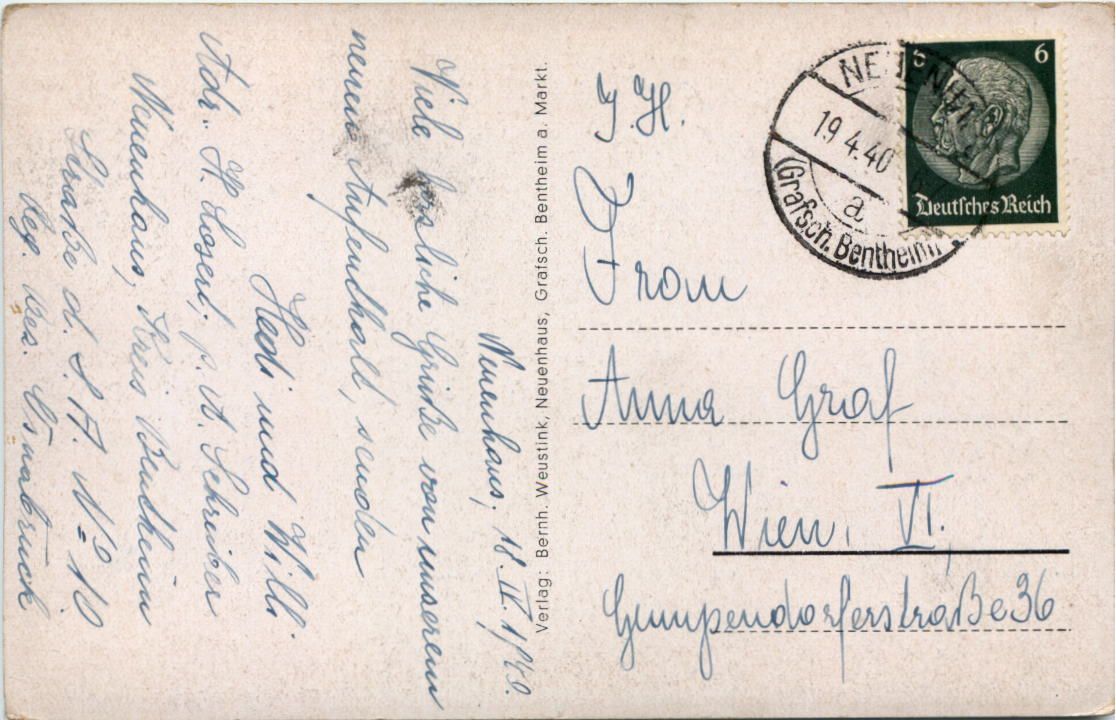 Neuenhaus, 18. IV. 1940.
Viele herzliche Grüße von unserem
neuen Aufenthalt, senden
Hedi und Willi.
Adr. H. Losert. p. A. Schreiber
Neuenhaus, Kreis Bentheim
Straße d. S. A. No 10.
Beg. Bez. Osnabrück
Verlag: Bernh. Weustink, Neuenhaus, Grafsch. Bentheim a. Markt.
NEUENHAUS
19.4.40
a
(Grafsch. Bentheim)
6 6
Deutsches Reich
J. H.
Frau
Anna Graf
Wien, VI.
Gumpendorferstraße 36